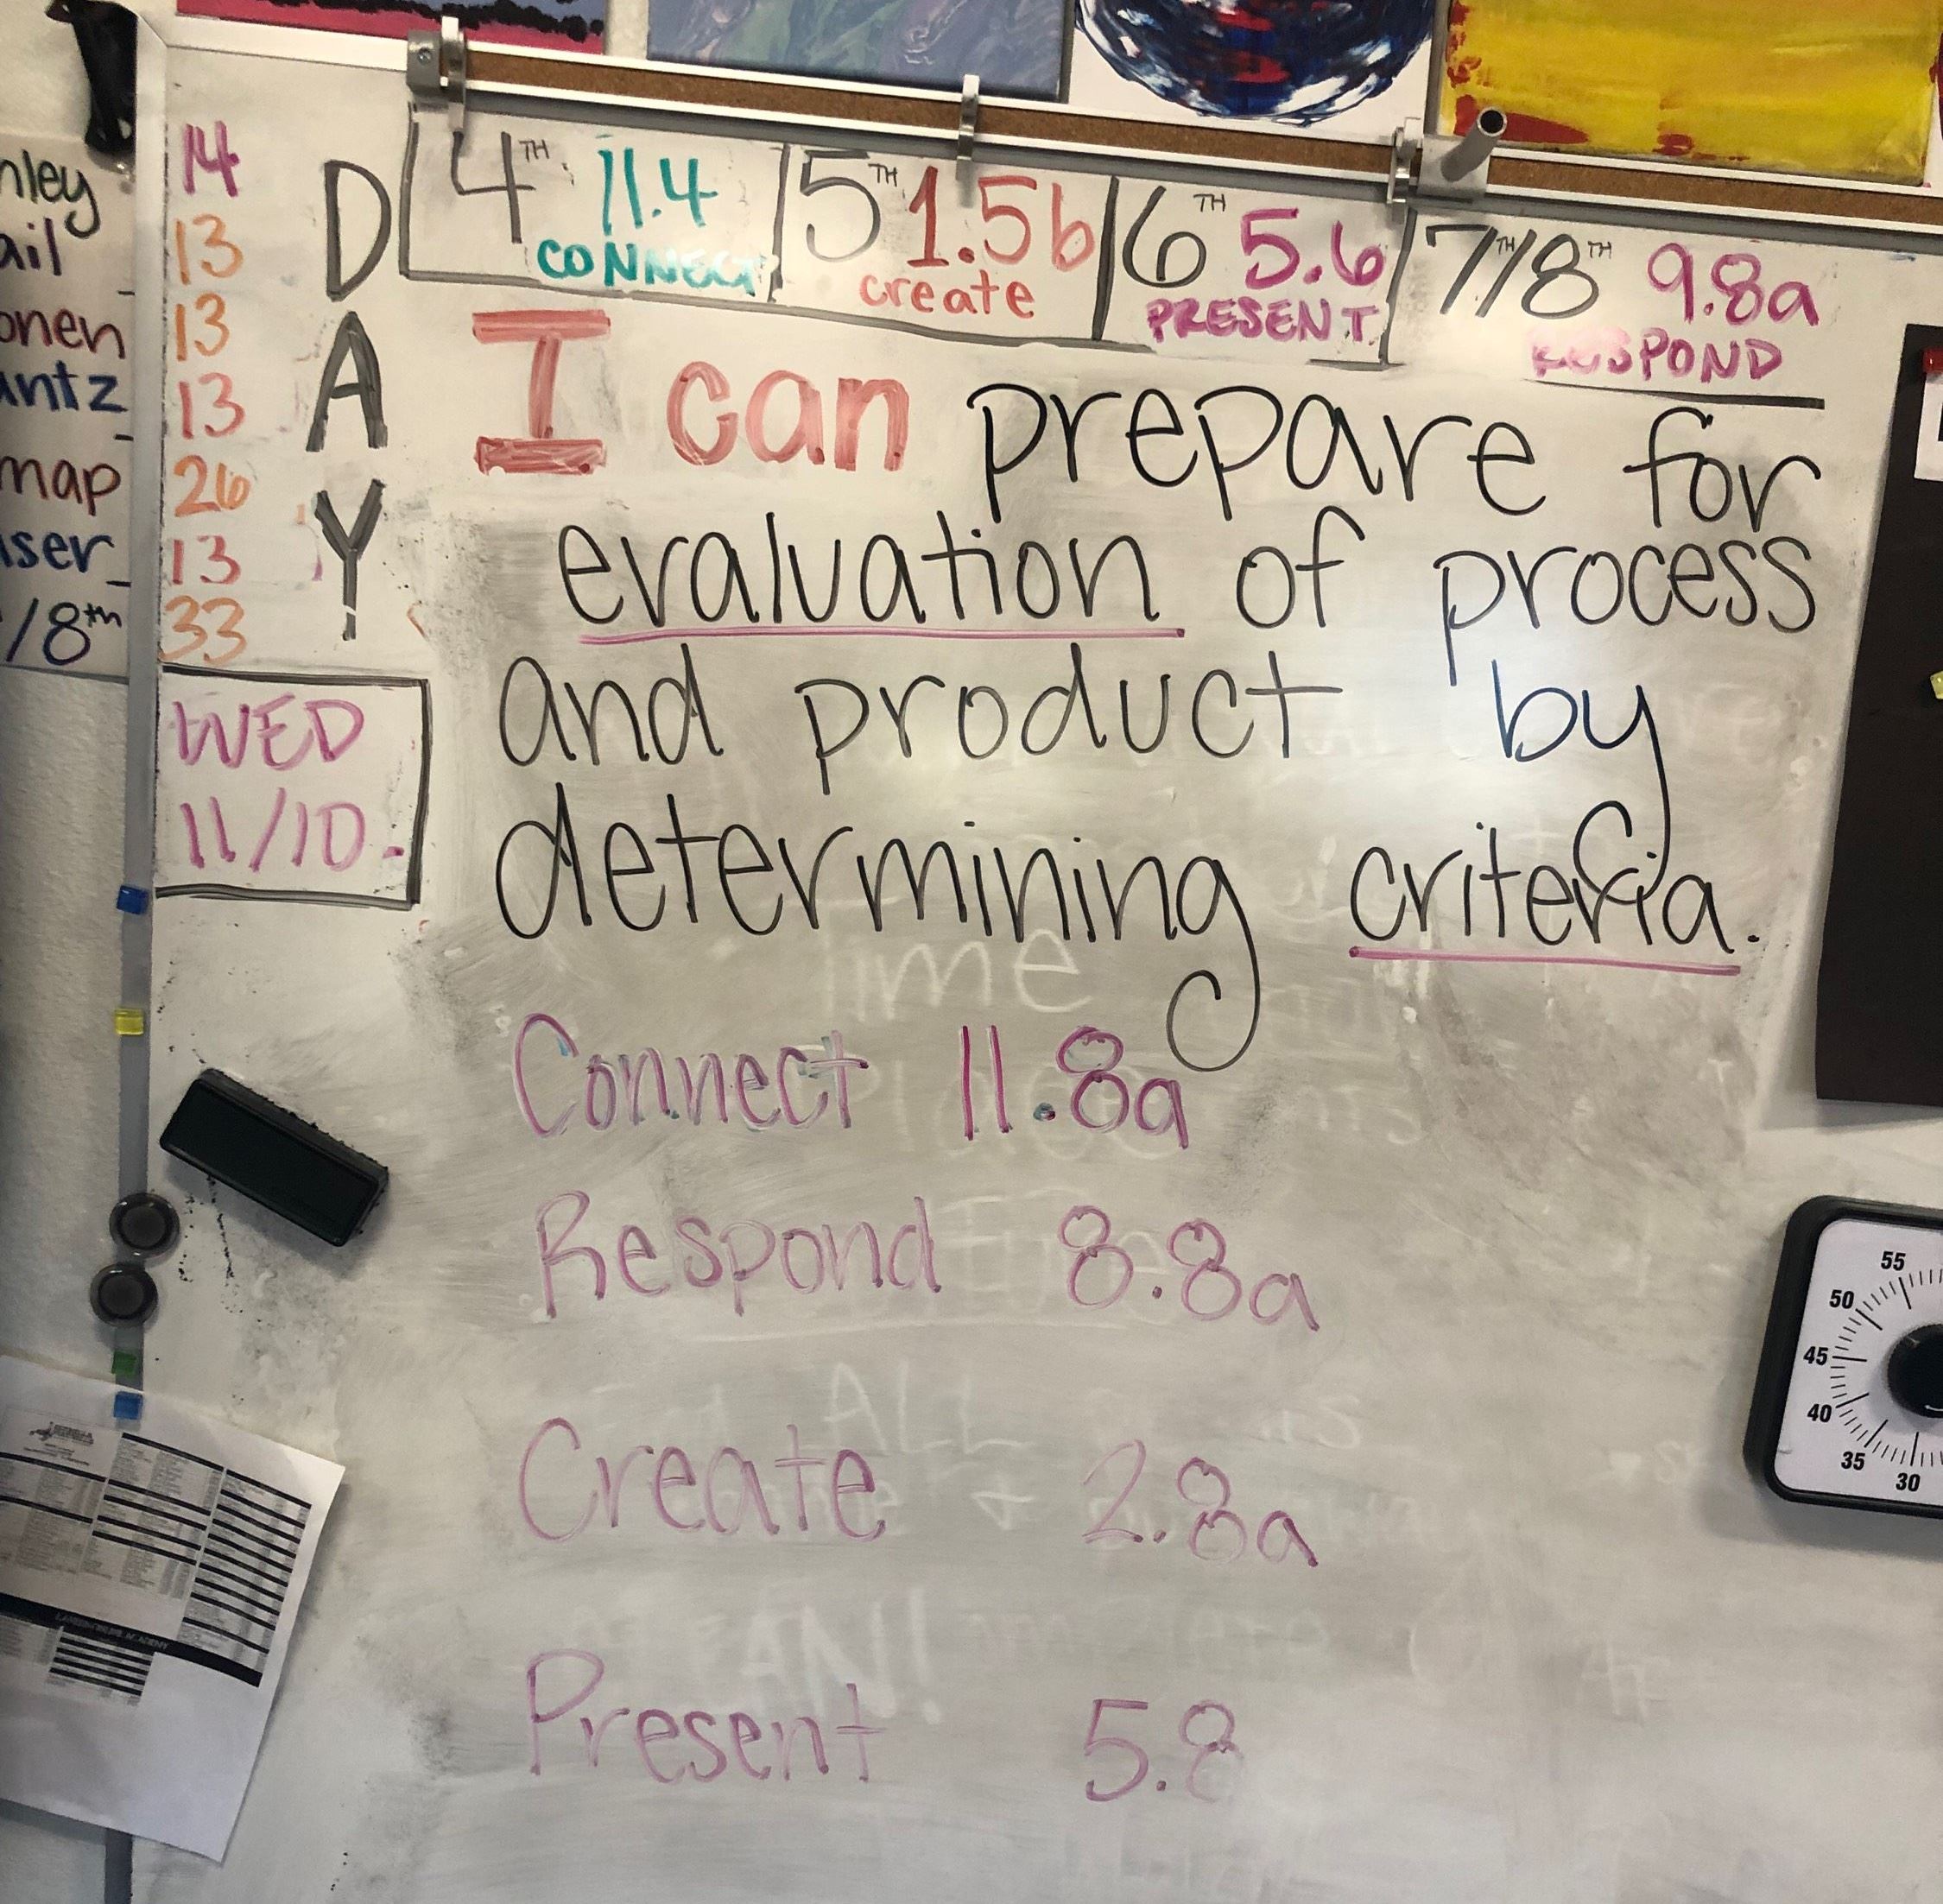 14
13
13
13
26
13
33
nley
ail
onen
antz
map
iser
/8th
DAY
WED
11/10.
4TH 11.4
CONNECT
5TH 1.5b
create
6TH 5.6
PRESENT
7TH/8TH 9.8a
RESPOND
I can prepare for
evaluation of process
and product by
determining criteria.
Time
Connect 11.8a
Respond 8.8a
ALL
Create 2.8a
Present 5.8
55
50
45
40
35
30